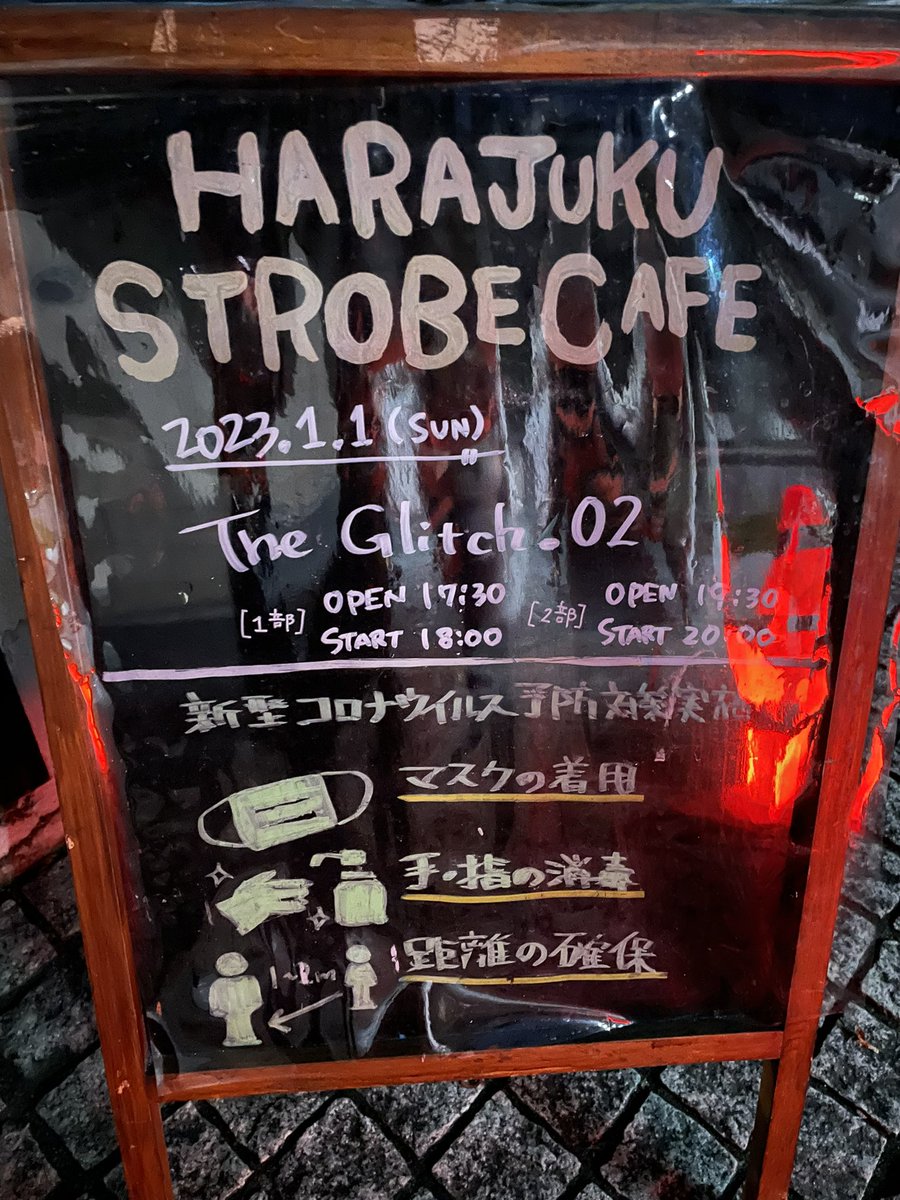 HARAJUKU
STROBE CAFE
2023.1.1 (SUN)
The Glitch.02
[1部] OPEN 17:30 START 18:00
[2部] OPEN 19:30 START 20:00
新型コロナウイルス予防対策実施
マスクの着用
手・指の消毒
1~2m
距離の確保